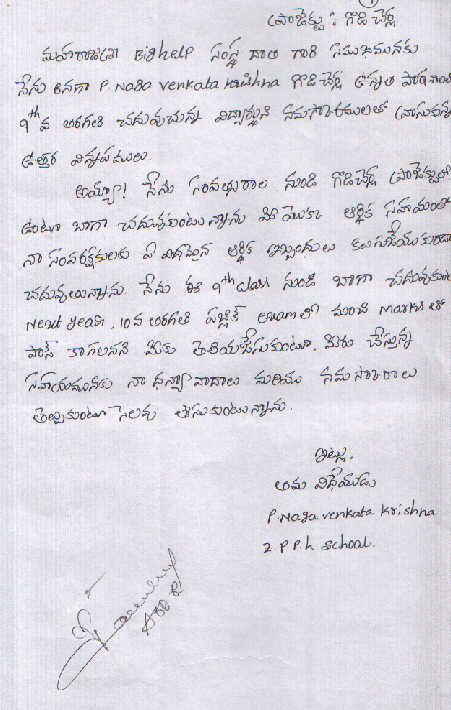 ప్రాజెక్టు : గొడిచెర్ల
మహారాజశ్రీ Bighelp సంస్థ దాత గారి సముఖమునకు
నేను అనగా P. Naga venkata krishna గొడిచెర్ల ఉన్నత పాఠశాల
9th వ తరగతి చదువుచున్న విద్యార్థిని నమస్కారములతో వ్రాసుకున్న
ఉత్తర విన్నపములు.
అయ్యా! నేను సంవత్సరాల నుండి గొడిచెర్ల ప్రాజెక్టులో
ఉంటూ బాగా చదువుకుంటున్నాను మీ యొక్క ఆర్థిక సహాయంతో
నా సంరక్షకులకు ఏ విధమైన ఆర్థిక ఇబ్బందులు కలుగజేయకుండా
చదువుతున్నాను. నేను ఈ 9th class నుండి బాగా చదువుకుని
Next year, 10వ తరగతి పబ్లిక్ exam లో మంచి Marks తో
పాస్ కాగలనని మీకు తెలియజేసుకుంటూ, మీరు చేస్తున్న
సహాయమునకు నా ధన్యవాదాలు మరియు నమస్కారాలు
తెల్పుకుంటూ సెలవు తీసుకుంటున్నాను.
ఇట్లు,
తమ విధేయుడు
P. Naga venkata krishna
Z P P h school.